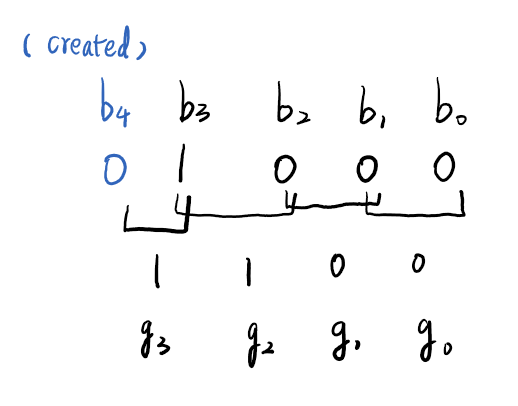 (created)
b₄ b₃ b₂ b₁ b₀
0 1 0 0 0
1 1 0 0
g₃ g₂ g₁ g₀